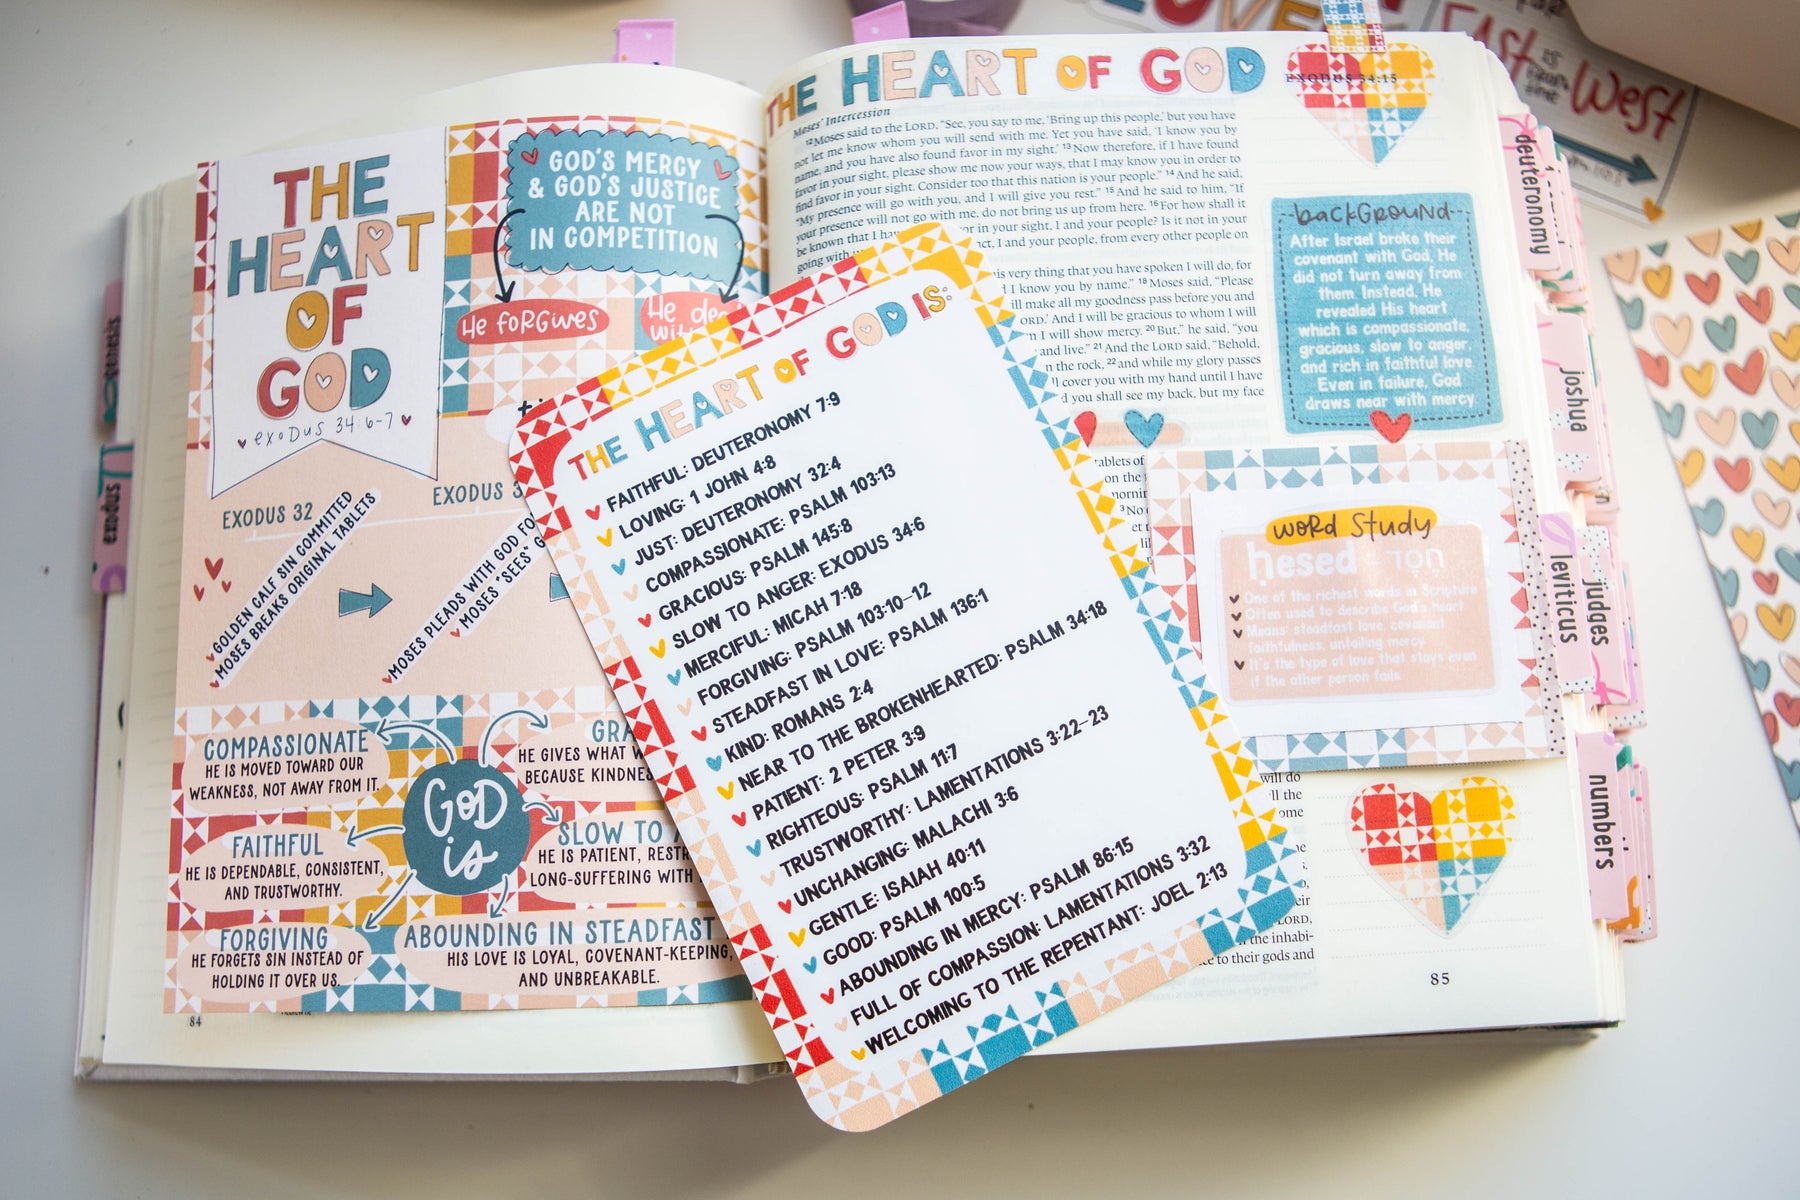 THE
HEART
OF
GOD
exodus 34:6-7
GOD'S MERCY
& GOD'S JUSTICE
ARE NOT
IN COMPETITION
He forgives
He
with
EXODUS 32
GOLDEN CALF SIN COMMITTED
MOSES BREAKS ORIGINAL TABLETS
EXODUS
MOSES PLEADS WITH GOD
MOSES "SEES"
GOD
is
COMPASSIONATE
HE IS MOVED TOWARD OUR
WEAKNESS, NOT AWAY FROM IT.
HE GIVES WHAT
BECAUSE
FAITHFUL
HE IS DEPENDABLE, CONSISTENT,
AND TRUSTWORTHY.
SLOW TO
HE IS PATIENT,
LONG-SUFFERING WITH
FORGIVING
HE FORGETS SIN INSTEAD OF
HOLDING IT OVER US.
ABOUNDING IN STEADFAST
HIS LOVE IS LOYAL, COVENANT-KEEPING,
AND UNBREAKABLE.
84
genesis
exodus
THE HEART OF GOD IS:
FAITHFUL: DEUTERONOMY 7:9
LOVING: 1 JOHN 4:8
JUST: DEUTERONOMY 32:4
COMPASSIONATE: PSALM 103:13
GRACIOUS: PSALM 145:8
SLOW TO ANGER: EXODUS 34:6
MERCIFUL: MICAH 7:18
FORGIVING: PSALM 103:10-12
STEADFAST IN LOVE: PSALM 136:1
KIND: ROMANS 2:4
NEAR TO THE BROKENHEARTED: PSALM 34:18
PATIENT: 2 PETER 3:9
RIGHTEOUS: PSALM 11:7
TRUSTWORTHY: LAMENTATIONS 3:22-23
UNCHANGING: MALACHI 3:6
GENTLE: ISAIAH 40:11
GOOD: PSALM 100:5
ABOUNDING IN MERCY: PSALM 86:15
FULL OF COMPASSION: LAMENTATIONS 3:32
WELCOMING TO THE REPENTANT: JOEL 2:13
THE HEART OF GOD
EXODUS 34:15
Moses' Intercession
12 Moses said to the LORD, "See, you say to me, 'Bring up this people,' but you have
not let me know whom you will send with me. Yet you have said, 'I know you by
name, and you have also found favor in my sight.' 13 Now therefore, if I have found
favor in your sight, please show me now your ways, that I may know you in order to
find favor in your sight. Consider too that this nation is your people." 14 And he said,
"My presence will go with you, and I will give you rest." 15 And he said to him, "If
your presence will not go with me, do not bring us up from here. 16 For how shall it
be known that I have favor in your sight, I and your people? Is it not in your
going with I and your people, from every other people on
is very thing that you have spoken I will do, for
I know you by name." 18 Moses said, "Please
ill make all my goodness pass before you and
ORD.' And I will be gracious to whom I
I will show mercy. 20 But," he said, "you
and live." 21 And the LORD said, "Behold,
n the rock, 22 and while my glory passes
ll cover you with my hand until I have
d you shall see my back, but my face
tablets of
on the
3 No
background
After Israel broke their
covenant with God, He
did not turn away from
them. Instead, He
revealed His heart
which is compassionate,
gracious, slow to anger,
and rich in faithful love.
Even in failure, God
draws near with mercy.
word study
ḥesed חֶסֶד
One of the richest words in Scripture
Often used to describe God's heart
Means: steadfast love, covenant
faithfulness, unfailing mercy
It's the type of love that stays even
if the other person fails
will do
ll the
ome
LORD,
the inhabi-
to their gods and
85
deuteronomy
joshua
leviticus
judges
numbers
East
is
from
the
West